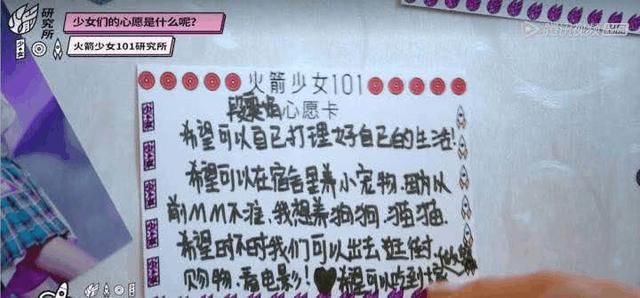 研究所
少女
少女们的心愿是什么呢?
火箭少女101研究所
火箭少女101
段奥娟心愿卡
希望可以自己打理好自己的生活!
希望可以在宿舍里养小宠物.因为从
前MM不准,我想养狗狗.猫猫.
希望时不时我们可以出去逛街
购物,看电影!♥希望可以吃到